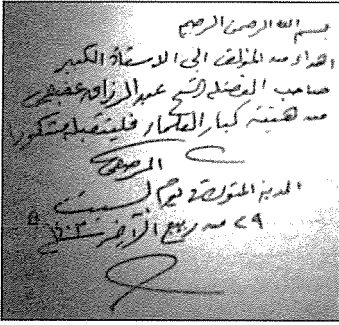 بسم الله الرحمن الرحيم
اهداء من المؤلف الى الاستاذ الكبير
صاحب الفضيلة الشيخ عبد الرزاق عفيفي
من هيئة كبار العلماء فليتقبله مشكورا
المرصفي
المدينة المنورة في يوم السبت
٢٩ من ربيع الآخر سنة ١٤٠٣ هـ